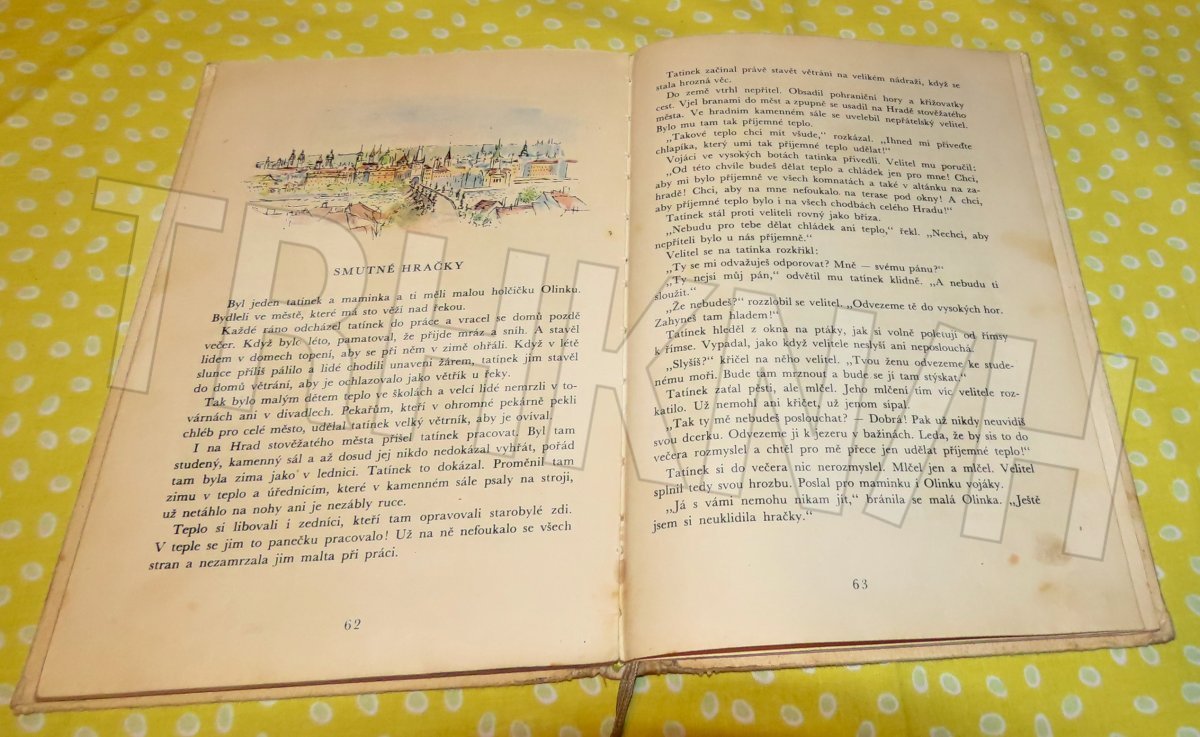 SMUTNÉ HRAČKY
Byl jeden tatínek a maminka a ti měli malou holčičku Olinku.
Bydleli ve městě, které má sto věží nad řekou.
Každé ráno odcházel tatínek do práce a vracel se domů pozdě
večer. Když bylo léto, pamatoval, že přijde mráz a sníh. A stavěl
lidem v domech topení, aby se při něm v zimě ohřáli. Když v létě
slunce příliš pálilo a lidé chodili unaveni žárem, tatínek jim stavěl
do domů větrání, aby je ochlazovalo jako větřík u řeky.
Tak bylo malým dětem teplo ve školách a velcí lidé nemrzli v to-
várnách ani v divadlech. Pekařům, kteří v ohromné pekárně pekli
chléb pro celé město, udělal tatínek velký větrník, aby je ovíval.
I na Hrad stověžatého města přišel tatínek pracovat. Byl tam
studený, kamenný sál a až dosud jej nikdo nedokázal vyhřát, pořád
tam byla zima jako v lednici. Tatínek to dokázal. Proměnil tam
zimu v teplo a úřednicím, které v kamenném sále psaly na stroji,
už netáhlo na nohy ani je nezábly ruce.
Teplo si libovali i zedníci, kteří tam opravovali starobylé zdi.
V teple se jim to panečku pracovalo! Už na ně nefoukalo se všech
stran a nezamrzala jim malta při práci.
62
Tatínek začínal právě stavět větrání na velikém nádraží, když se
stala hrozná věc.
Do země vtrhl nepřítel. Obsadil pohraniční hory a křižovatky
cest. Vjel branami do měst a zpupně se usadil na Hradě stověžatého
města. Ve hradním kamenném sále se uvelebil nepřátelský velitel.
Bylo mu tam tak příjemné teplo.
„Takové teplo chci mít všude,“ rozkázal. „Ihned mi přiveďte
chlapíka, který umí tak příjemné teplo udělat!“
Vojáci ve vysokých botách tatínka přivedli. Velitel mu poručil:
„Od této chvíle budeš dělat teplo a chládek jen pro mne! Chci,
aby mi bylo příjemně ve všech komnatách a také v altánku na za-
hradě! Chci, aby na mne nefoukalo na terase pod okny! A chci,
aby příjemné teplo bylo i na všech chodbách celého Hradu!“
Tatínek stál proti veliteli rovný jako bříza.
„Nebudu pro tebe dělat chládek ani teplo,“ řekl. „Nechci, aby
nepříteli bylo u nás příjemně.“
Velitel se na tatínka rozkřikl:
„Ty se mi odvažuješ odporovat? Mně — svému pánu?“
„Ty nejsi můj pán,“ odvětil mu tatínek klidně. „A nebudu ti
sloužit.“
„Že nebudeš?“ rozzlobil se velitel. „Odvezeme tě do vysokých hor.
Zahyneš tam hladem!“
Tatínek hleděl z okna na ptáky, jak si volně poletují od římsy
k římse. Vypadal, jako když velitele neslyší ani neposlouchá.
„Slyšíš?“ křičel na něho velitel. „Tvou ženu odvezeme ke stude-
nému moři. Bude tam mrznout a bude se jí tam stýskat.“
Tatínek zaťal pěsti, ale mlčel. Jeho mlčení tím víc velitele roz-
katilo. Už nemohl ani křičet, už jenom sípal.
„Tak ty mě nebudeš poslouchat? — Dobrá! Pak už nikdy neuvidíš
svou dcerku. Odvezeme ji k jezeru v bažinách. Leda, že by sis to do
večera rozmyslel a chtěl pro mě přece jen udělat příjemné teplo!“
Tatínek si do večera nic nerozmyslel. Mlčel jen a mlčel. Velitel
splnil tedy svou hrozbu. Poslal pro maminku i Olinku vojáky.
„Já s vámi nemohu nikam jít,“ bránila se malá Olinka. „Ještě
jsem si neuklidila hračky.“
63
TRHKNIH